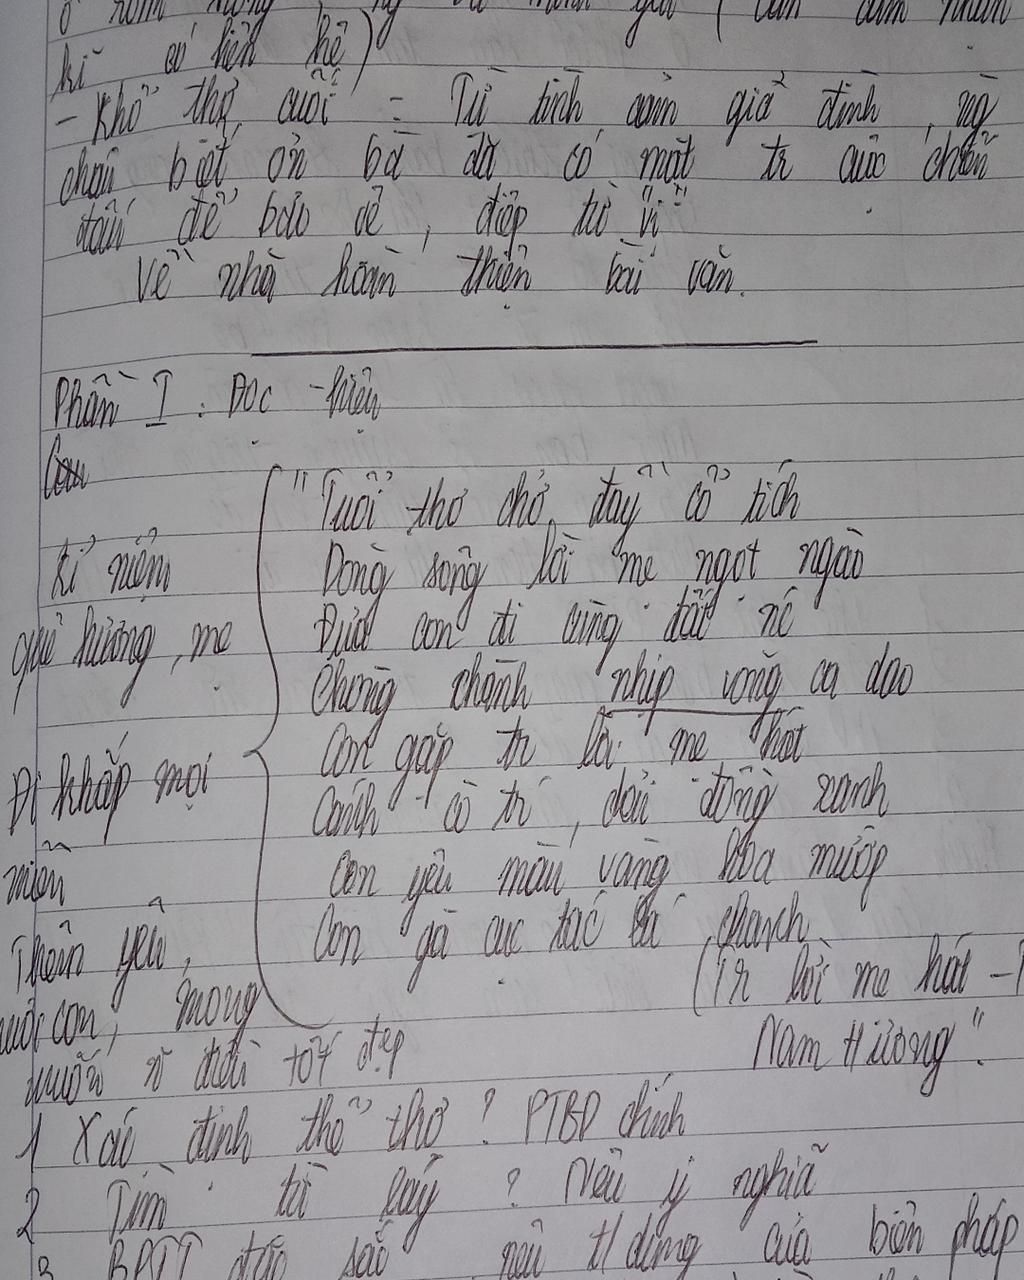 kì có liên hệ)
- Khổ thơ cuối = Từ tình cảm gia đình, ng
cháu biết ơn bà đã có mặt tr cuộc chiến
đấu để bảo vệ, điệp từ "vì"
Về nhà hoàn thiện bài văn.
Phần I : Đọc - hiểu
"Tuổi thơ chở đầy cổ tích
Dòng sông lời mẹ ngọt ngào
Đưa con đi cùng đất nc
Chòng chành nhịp võng ca dao
Con gặp tr lời mẹ hát
Cánh cò tr, dải đồng xanh
Con yêu màu vàng hoa mướp
Con gà cục tác lá chanh
(Tr lời mẹ hát - T
Nam Hương"
Kỉ niệm
quê hương, mẹ
Đi khắp mọi
miền
Thân yêu,
con, mong
muốn n điều tốt đẹp
1 Xác định thể thơ ? PTBĐ chính
2 Tìm từ láy ? Nêu ý nghĩa
3 BPTT đặc sắc nêu t/dụng của biện pháp